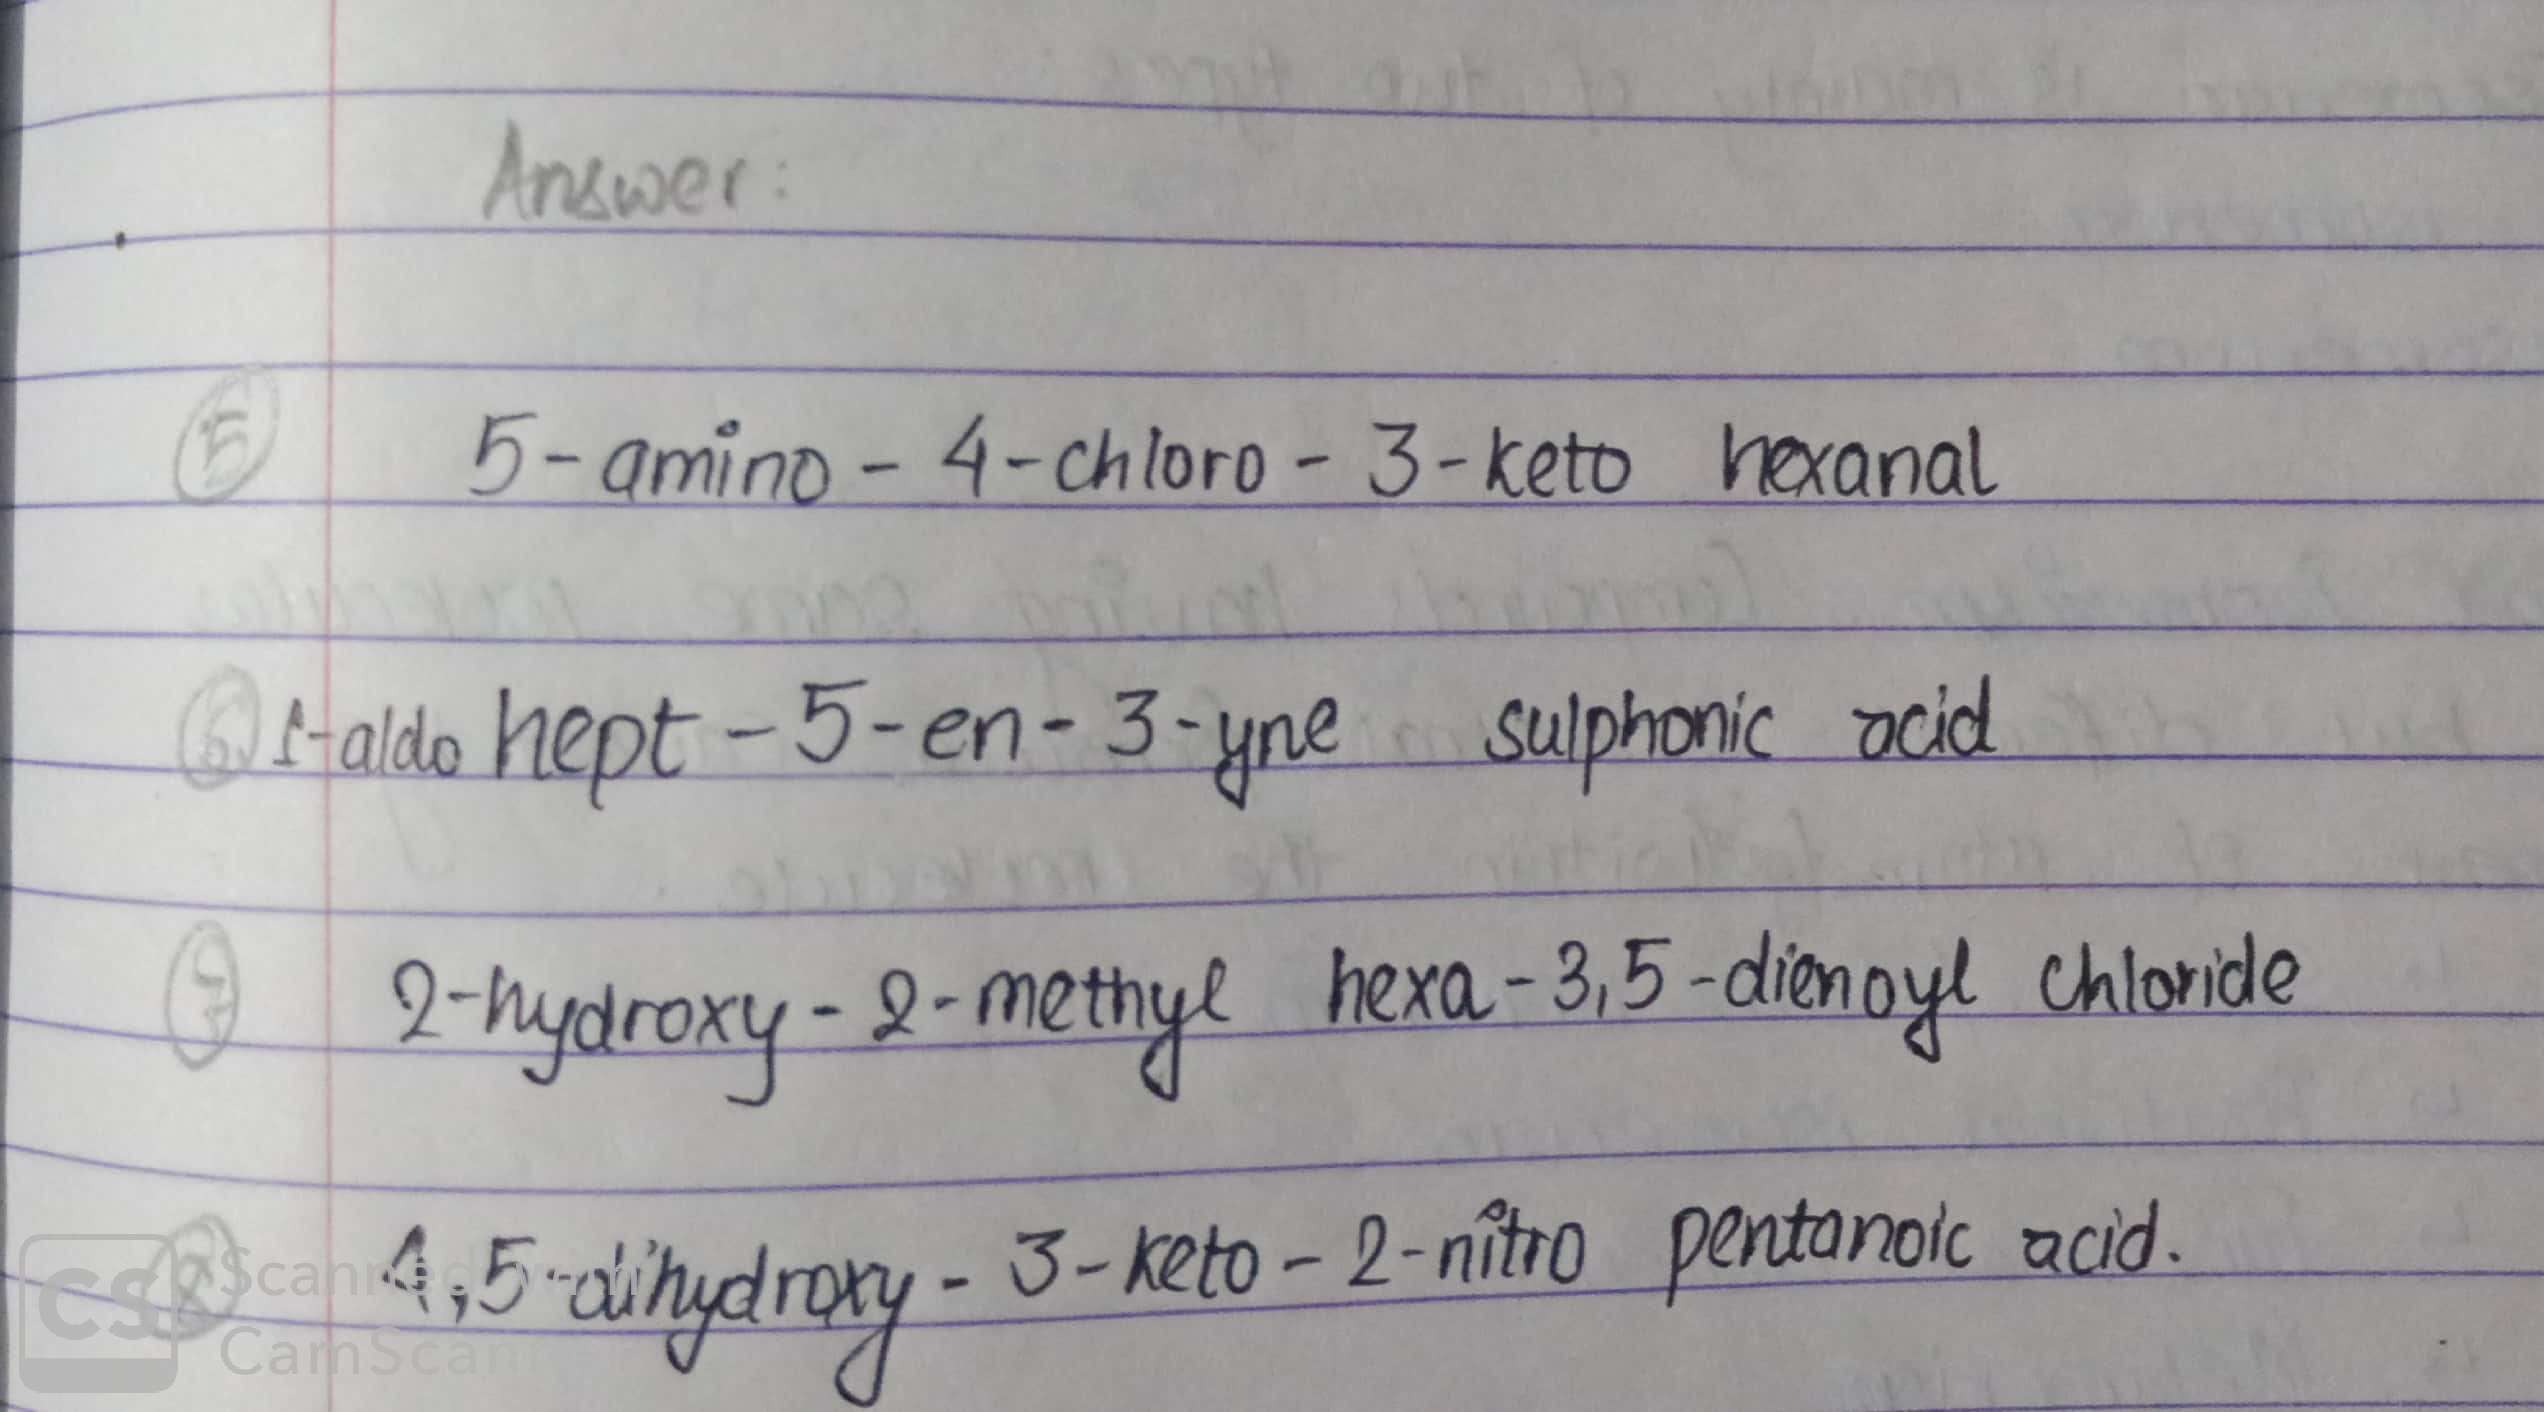 Answer:
5 5-amino - 4-chloro - 3-keto hexanal
6 1-aldo hept - 5-en - 3-yne sulphonic acid
7 2-hydroxy - 2-methyl hexa - 3,5-dienoyl chloride
8 4,5-dihydroxy - 3-keto - 2-nitro pentanoic acid.
CS Scanned with
CamScanner